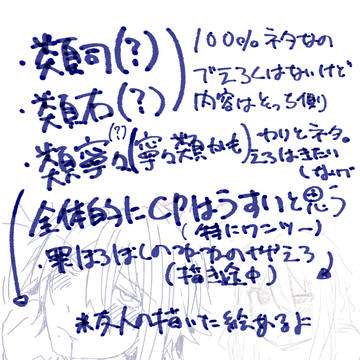 ・類司(?)
・類右(?)
100%ネタなの
でえろくはないけど
内容はとっち側
・類寧々(?)(寧々類かも)
わりとネタ。
えろはきたい
しないで
全体的にCPはうすいと思う
(特にワンツー)
・罪ほろぼしの
(描き途中)
※友人の描いた絵あるよ